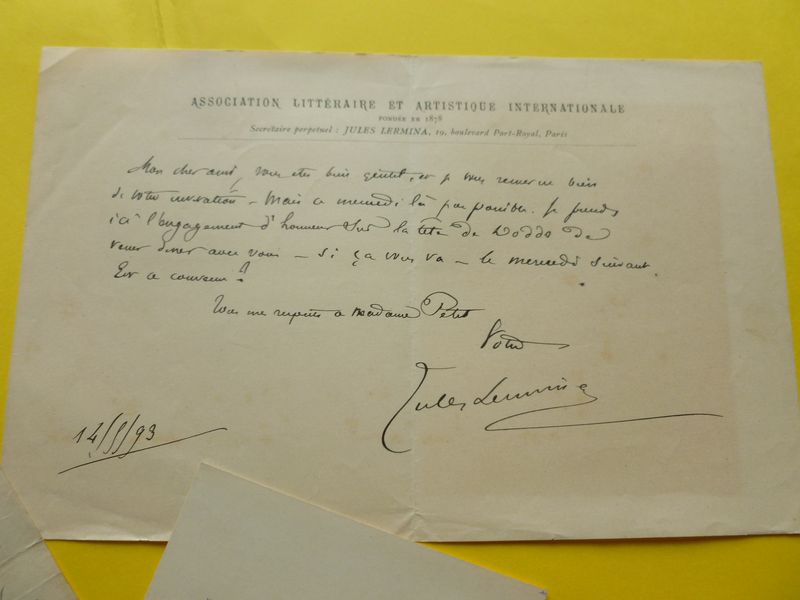 ASSOCIATION LITTÉRAIRE ET ARTISTIQUE INTERNATIONALE
FONDÉE EN 1878
Secrétaire perpetuel : JULES LERMINA, 19, boulevard Port-Royal, Paris
Mon cher ami, vous etes bien gentil, et je vous remercie bien
de votre invitation – Mais ce mercredi là pas possible. Je prends
ici l'engagement d'honneur sur la tête de Doddo de
venir diner avec vous – si ça vous va – le mercredi suivant.
Est ce convenu ?
Tous mes respects à Madame Petit
Votre
Jules Lermina
14/5/93